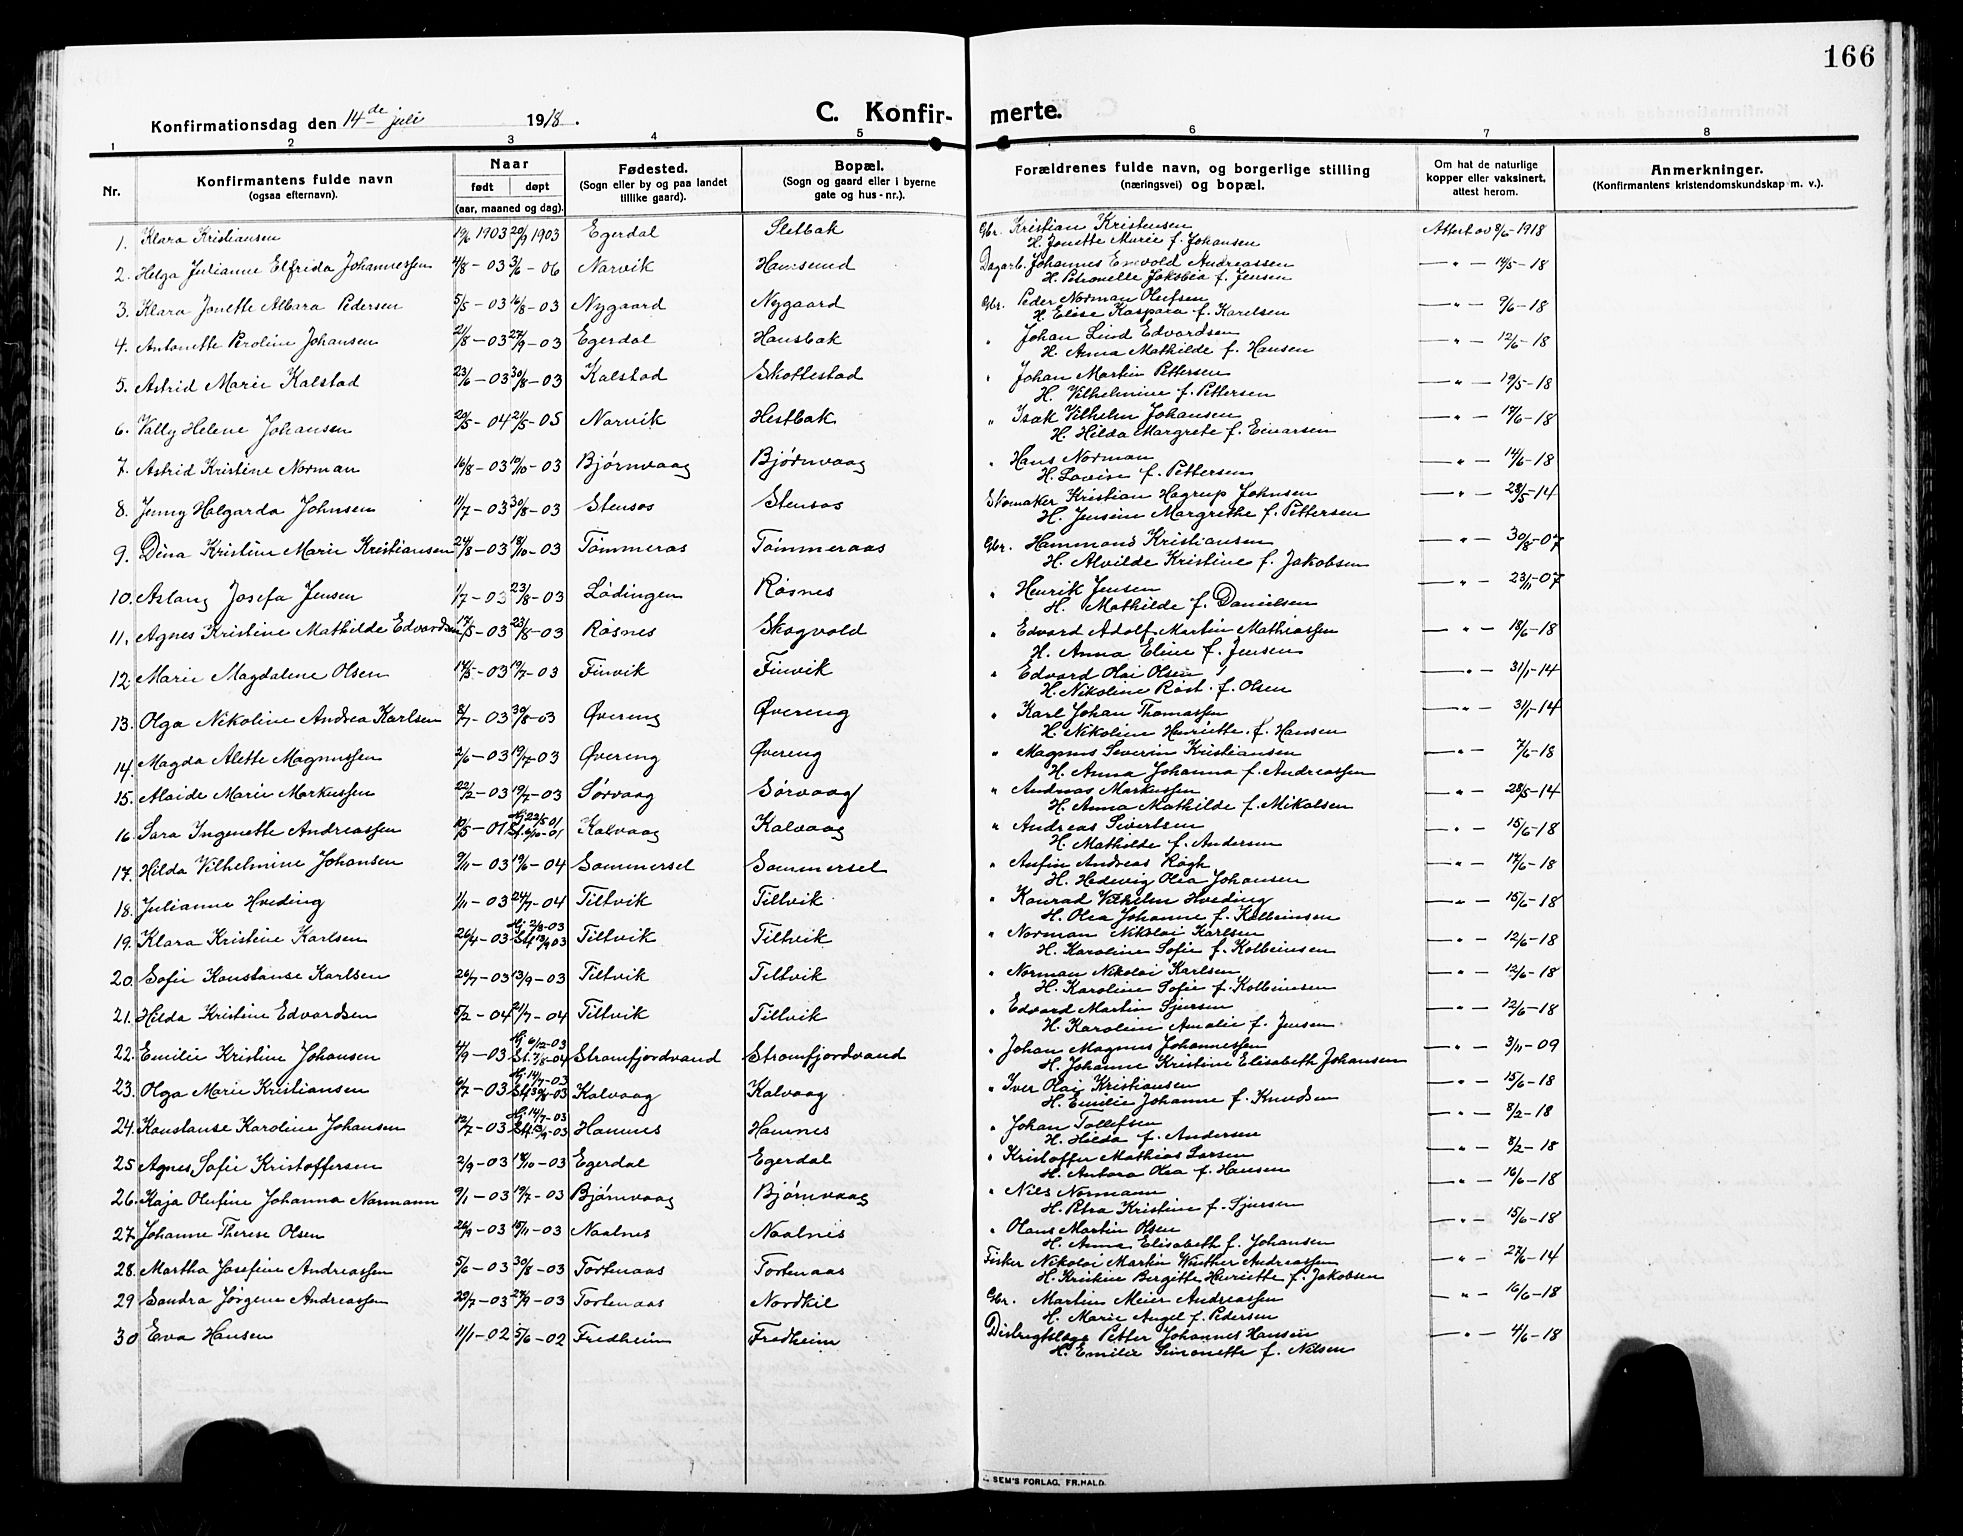 166
Konfirmationsdag den 14de juli 1918.
C. Konfirmerte.
1 2 3 4 5 6 7 8
Nr.
Konfirmantens fulde navn
(ogsaa efternavn).
Naar
født døpt
(aar, maaned og dag).
Fødested.
(Sogn eller by og paa landet
tillike gaard).
Bopæl.
(Sogn og gaard eller i byerne
gate og hus-nr.).
Forældrenes fulde navn, og borgerlige stilling
(næringsvei) og bopæl.
Om hat de naturlige
kopper eller vaksinert,
attest herom.
Anmerkninger.
(Konfirmantens kristendomskundskap m. v.).
1. Klara Kristiansen 19/6 1903 20/9 1903 Egerdal Sletbak Gbr. Kristian Kristensen Attest av 8/6-1918
H. Jonette Marie f. Johansen
2. Helga Julianne Elfrida Johannessen 4/8-03 3/6-06 Narvik Hamsund Dagarb. Johannes Enevold Andreassen — " — 14/5-18
H. Petronelle Jakobia f. Jensen
3. Klara Jonette Albara Pedersen 5/5-03 16/8-03 Nygaard Nygaard Gbr. Peder Norman Olufsen — " — 9/6-18
H. Elise Kaspara f. Karelsen
4. Antonette Peroline Johansen 21/8-03 27/9-03 Egerdal Hansbak " Johan Lind Edvardsen — " — 12/6-18
H. Anna Mathilde f. Hansen
5. Astrid Marie Kalstad 23/6-03 30/8-03 Kalstad Skottestad " Johan Martin Pettersen — " — 19/5-18
H. Vilhelmine f. Pettersen
6. Vally Helene Johansen 20/5-04 21/5-05 Narvik Hestbak " Isak Vilhelm Johansen — " — 17/6-18
H. Hilda Margrete f. Einarsen
7. Astrid Kristine Norman 16/8-03 10/10-03 Bjørnvaag Bjørnvaag " Hans Norman — " — 14/6-18
H. Lovise f. Pettersen
8. Jenny Halgarda Johnsen 11/7-03 30/8-03 Stensos Stensos Skomaker Kristian Hagrup Johnsen — " — 28/5-14
H. Jensine Margrethe f. Pettersen
9. Dina Kristine Marie Kristiansen 24/8-03 18/10-03 Tømmeras Tømmeraas Gbr. Hammond Kristiansen — " — 30/8-07
H. Alvilde Kristine f. Jakobsen
10. Aslaug Josefa Jensen 1/7-03 23/8-03 Lødingen Røsnes " Henrik Jensen — " — 23/11-07
H. Mathilde f. Danielsen
11. Agnes Kristine Mathilde Edvardsen 17/5-03 23/8-03 Røsnes Skogvold " Edvard Adolf Martin Mathiassen — " — 18/6-18
H. Anna Eline f. Jensen
12. Marie Magdalene Olsen 14/5-03 19/7-03 Finvik Finvik " Edvard Olai Olsen — " — 31/1-14
H. Nikoline Röst. f. Olsen
13. Olga Nikoline Andrea Karlsen 8/7-03 30/8-03 Øvereng Øvereng " Karl Johan Thomassen — " — 31/1-14
H. Nikoline Henriette f. Hansen
14. Magda Alette Magnussen 2/6-03 19/7-03 Øvereng Øvereng " Magnus Severin Kristiansen — " — 7/6-18
H. Anna Johanna f. Andreassen
15. Alaide Marie Markussen 22/2-03 19/7-03 Sørvaag Sørvaag " Andreas Markussen — " — 28/5-14
H. Anna Mathilde f. Mikalsen
16. Sara Ingenette Andreassen 10/5-01 Hj. 22/5 01 St. 6/10-01 Kalvaag Kalvaag " Andreas Sivertsen — " — 15/6-18
H. Mathilde f. Andersen
17. Hilda Vilhelmine Johansen 9/11-03 19/6-04 Sommersel Sommersel " Anfin Andreas Røgh — " — 17/6-18
H. Hedevig Olea Johansen
18. Julianne Hveding 1/11-03 24/7-04 Tiltvik Tiltvik " Konrad Vilhelm Hveding — " — 15/6-18
H. Olea Johanne f. Kolbeinsen
19. Klara Kristine Karlsen 26/4-03 Hj. 2/8-03 St. 13/9 03 Tiltvik Tiltvik " Norman Nikolai Karlsen — " — 12/6-18
H. Karoline Sofie f. Kolbeinsen
20. Sofie Konstanse Karlsen 26/7-03 13/9-03 Tiltvik Tiltvik " Norman Nikolai Karlsen — " — 12/6-18
H. Karoline Sofie f. Kolbeinsen
21. Hilda Kristine Edvardsen 5/2-04 21/7-04 Tiltvik Tiltvik " Edvard Martin Sjursen — " — 12/6-18
H. Karoline Amalie f. Jensen
22. Emilie Kristine Johansen 4/9-03 Hj. 6/12-03 St. 7/8-04 Strømfjordvand Strømfjordvand " Johan Magnus Johannessen — " — 3/11-09
H. Johanne Kristine Elisabeth Johansen
23. Olga Marie Kristiansen 6/7-03 Hj. 14/7-03 St. 30/8-03 Kalvaag Kalvaag " Iver Olai Kristiansen — " — 15/6-18
H. Emilie Johanne f. Knudsen
24. Konstanse Karoline Johansen 12/7-03 Hj. 14/7-03 St. 13/9-03 Hamnes Hamnes " Johan Tollefsen — " — 8/2-18
H. Hilda f. Andersen
25 Agnes Sofie Kristoffersen 2/9-03 18/10-03 Egerdal Egerdal " Kristoffer Mathias Larsen — " — 8/2-18
H. Antora Olea f. Hansen
26. Kaja Olufine Johanna Normann 9/1-03 19/7-03 Bjørnvaag Bjørnvaag " Nils Normann — " — 16/6-18
H. Petra Kristine f. Sjursen
27. Johanne Therese Olsen 26/9-03 15/11-03 Naalnes Naalnes " Hans Martin Olsen — " — 15/6-18
H. Anna Elisabeth f. Johansen
28. Martha Josefine Andreassen 5/6-03 30/8-03 Tortenaas Tortenaas Fisker Nikolai Martin Winther Andreassen — " — 27/6-14
H. Kristine Bergitte Henriette f. Jakobsen
29 Sandra Jørgine Andreassen 29/7-03 27/9-03 Tortenaas Nordkil Gbr. Martin Meier Andreassen — " — 16/6-18
H. Marie Angel f. Pedersen
30 Eva Hansen 11/1-02 5/6-02 Fredheim Fredheim Distriktslæge Petter Johannes Hansen — " — 4/6-18
H. Emilie Simonette f. Nilsen
SEM'S FORLAG, FR.HALD.